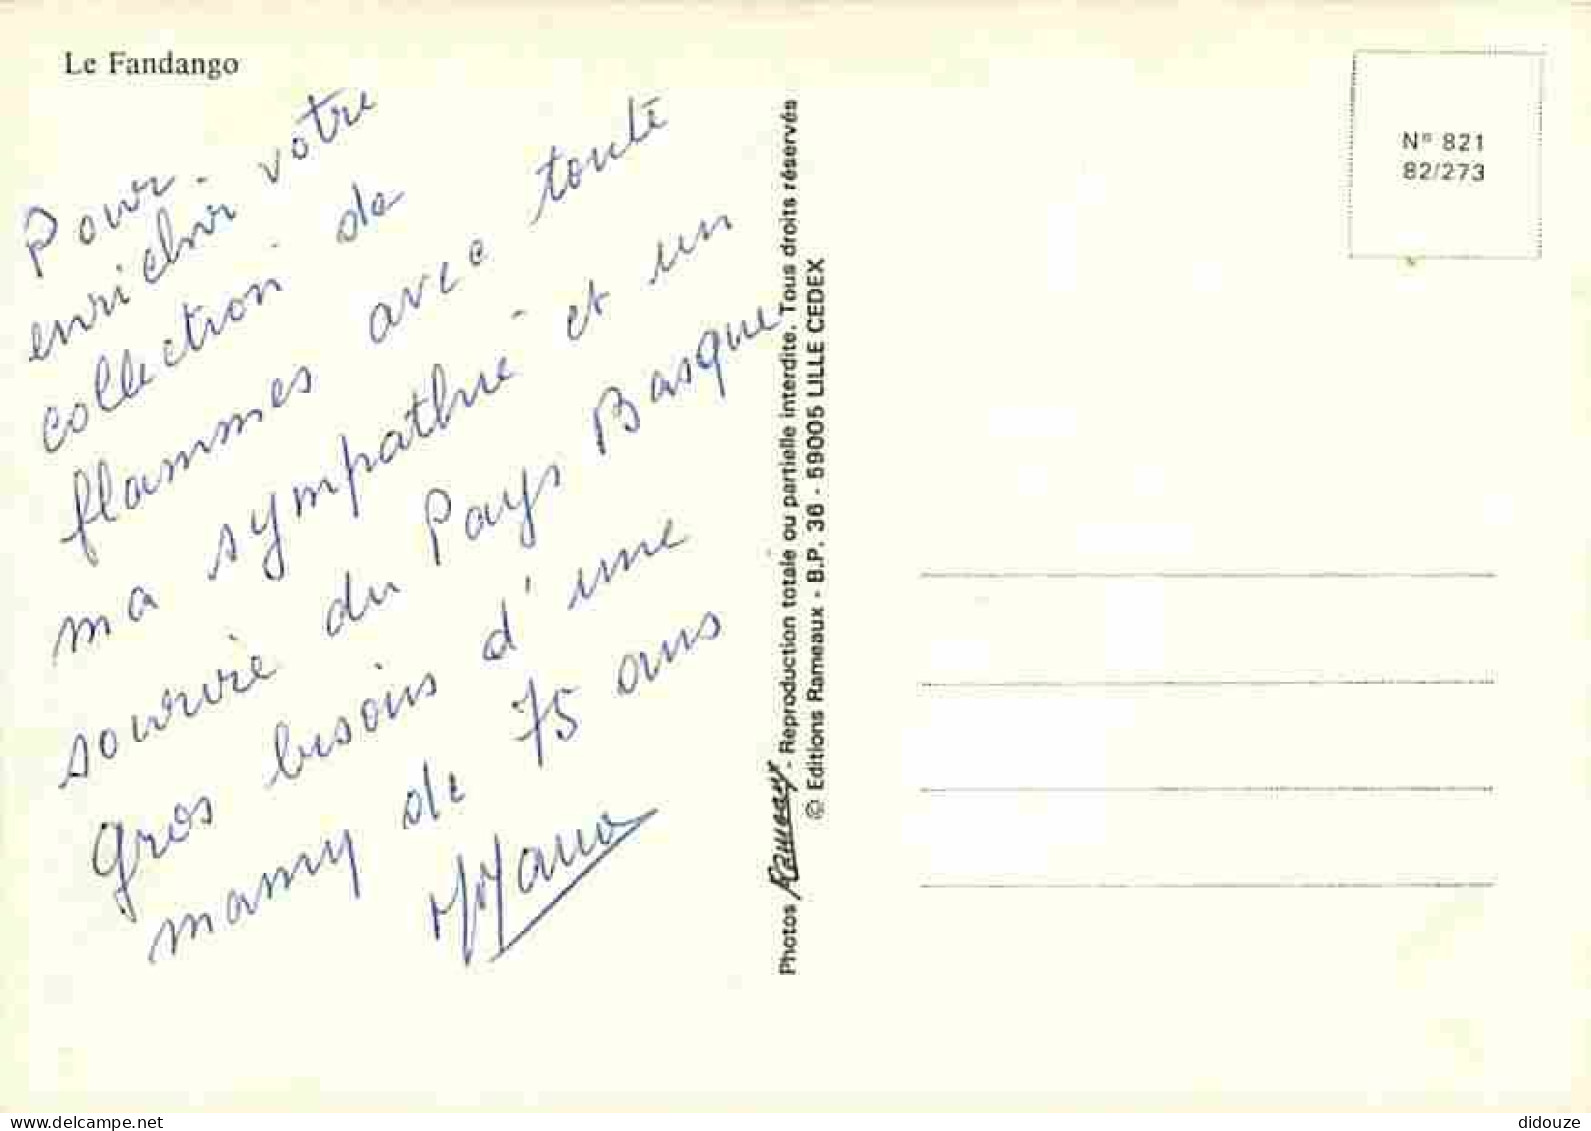 Le Fandango
Pour votre
enrichir
collection de
flammes avec toute
ma sympathie et un
sourire du Pays Basque
Gros besoins d'une
mamy de 75 ans
Photos Rameau - Reproduction totale ou partielle interdite. Tous droits réservés
© Editions Rameaux - B.P. 36 - 59005 LILLE CEDEX
Nº 821
82/273
delcampe.net
didouze